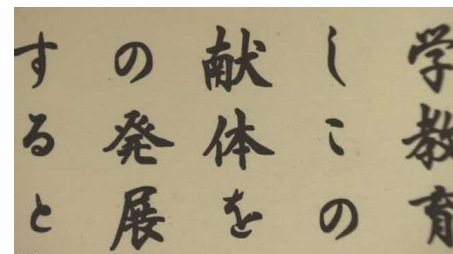 学教育
しこの
献体を
の発展
すると